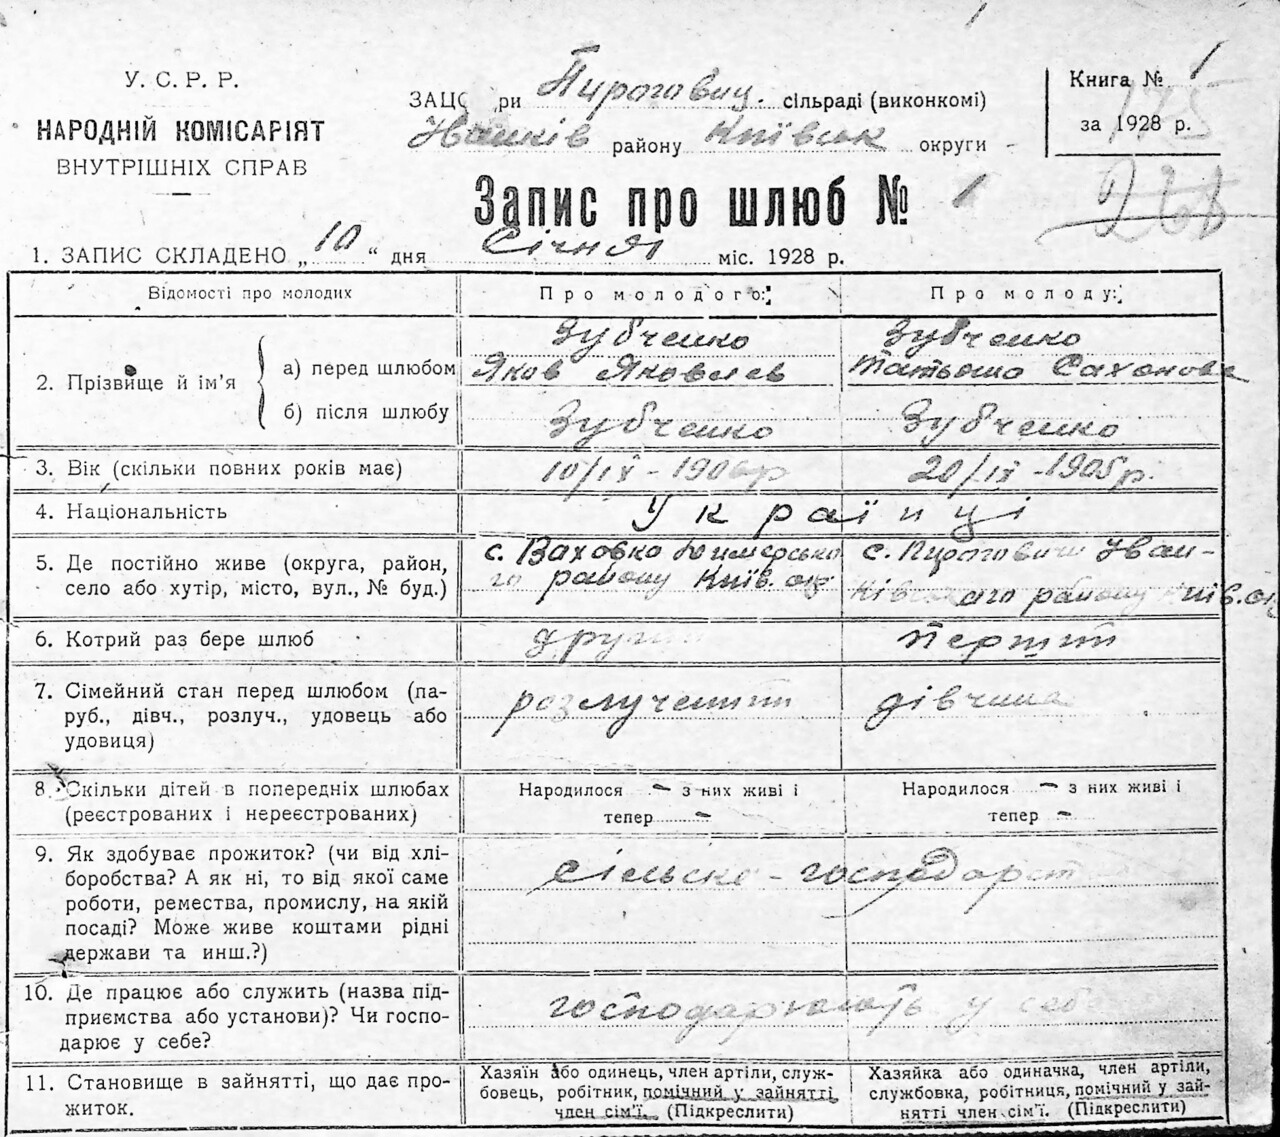 У. С. Р. Р.
НАРОДНІЙ КОМІСАРІЯТ
ВНУТРІШНІХ СПРАВ
ЗАЦС при Пироговиц. сільраді (виконкомі)
району Київськ округи
Книга № 1
за 1928 р.
175
268
Запис про шлюб № 1
1. ЗАПИС СКЛАДЕНО „10“ дня Січня міс. 1928 р.
Відомості про молодих
Про молодого:
Про молоду:
2. Прізвище й ім'я
а) перед шлюбом
Зубченко
Яков Яковлев
Зубченко
Татьяна
б) після шлюбу
Зубченко
Зубченко
3. Вік (скільки повних років має)
10/ІХ - 1906р
20/ІХ - 1905р.
4. Національність
Українці
5. Де постійно живе (округа, район,
село або хутір, місто, вул., № буд.)
с. Ваховка Димерсько
го району Київ. окр.
с. Пироговичи Іван-
ківського району Київ. окр
6. Котрий раз бере шлюб
другий
перший
7. Сімейний стан перед шлюбом (па-
руб., дівч., розлуч., удовець або
удовиця)
розлучений
дівчина
8. Скільки дітей в попередніх шлюбах
(реєстрованих і нереєстрованих)
Народилося - з них живі і
тепер -
Народилося - з них живі і
тепер -
9. Як здобуває прожиток? (чи від хлі-
боробства? А як ні, то від якої саме
роботи, ремества, промислу, на якій
посаді? Може живе коштами рідні
держави та инш.?)
Сільське - господарст
10. Де працює або служить (назва під-
приємства або установи)? Чи госпо-
дарює у себе?
господарюють у себе
11. Становище в зайнятті, що дає про-
житок.
Хазяїн або одинець, член артіли, служ-
бовець, робітник, помічний у зайнятті
член сім'ї. (Підкреслити)
Хазяйка або одиначка, член артіли,
службовка, робітниця, помічний у зай-
нятті член сім'ї. (Підкреслити)